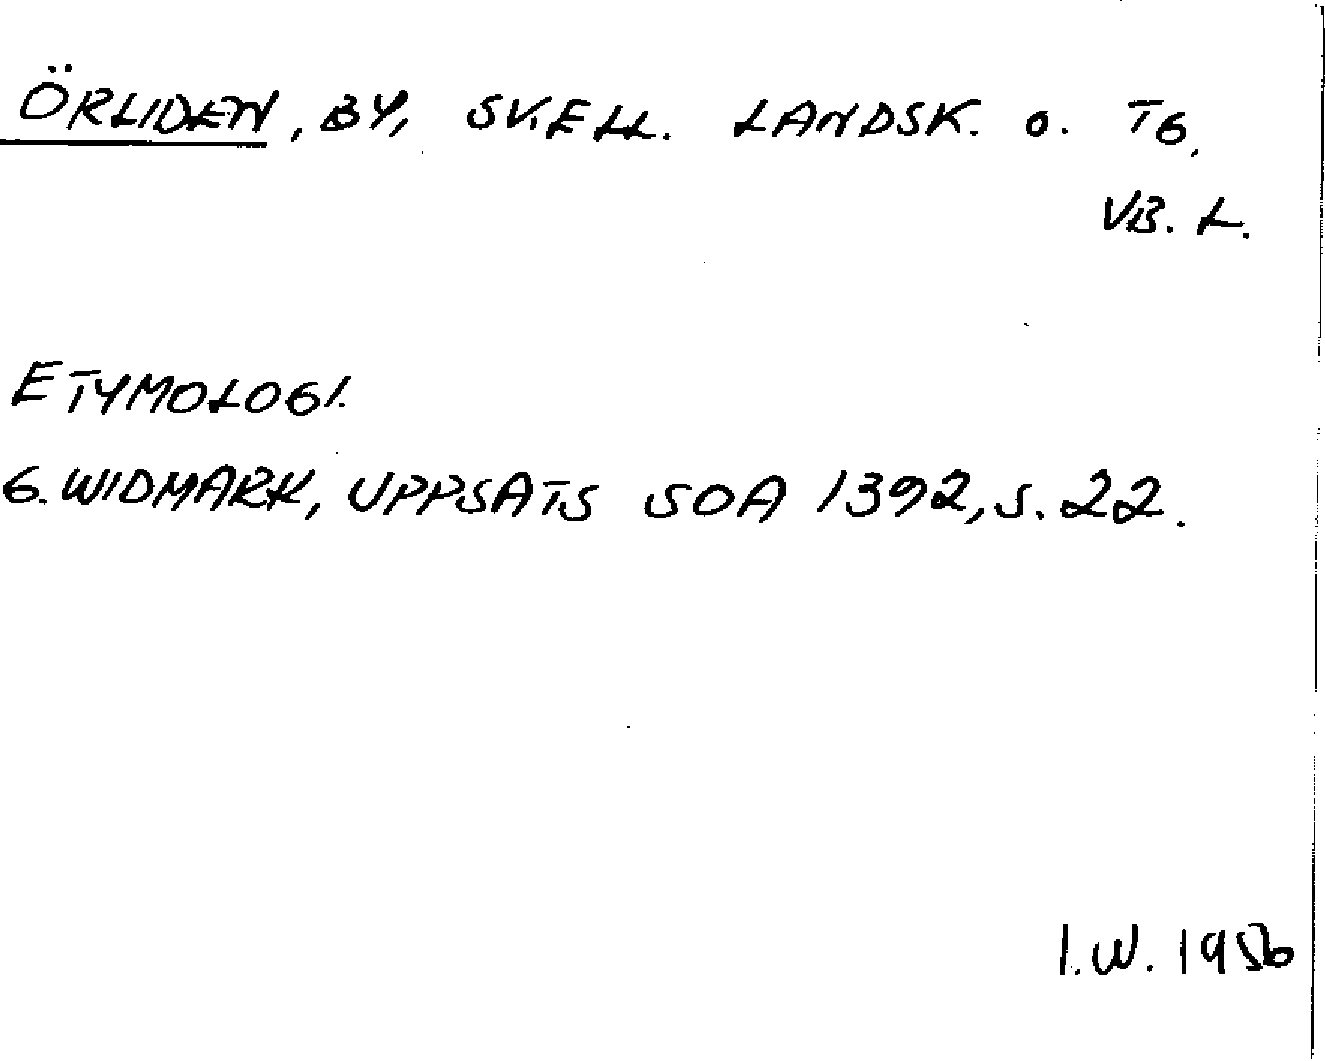 ÖRLIDEN, BY, SKELL. LANDSK. O. TG,
VB. L.
ETYMOLOGI.
G. WIDMARK, UPPSATS SOA 1392, S. 22.
I.W. 1956